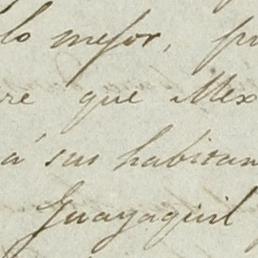 lo mejor, pr
re que Mex
á sus habitan
Guayaquil